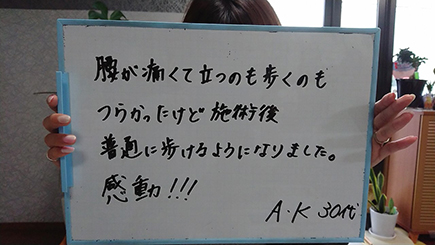 腰が痛くて立つのも歩くのも
つらかったけど施術後
普通に歩けるようになりました。
感動!!!
A・K 30代